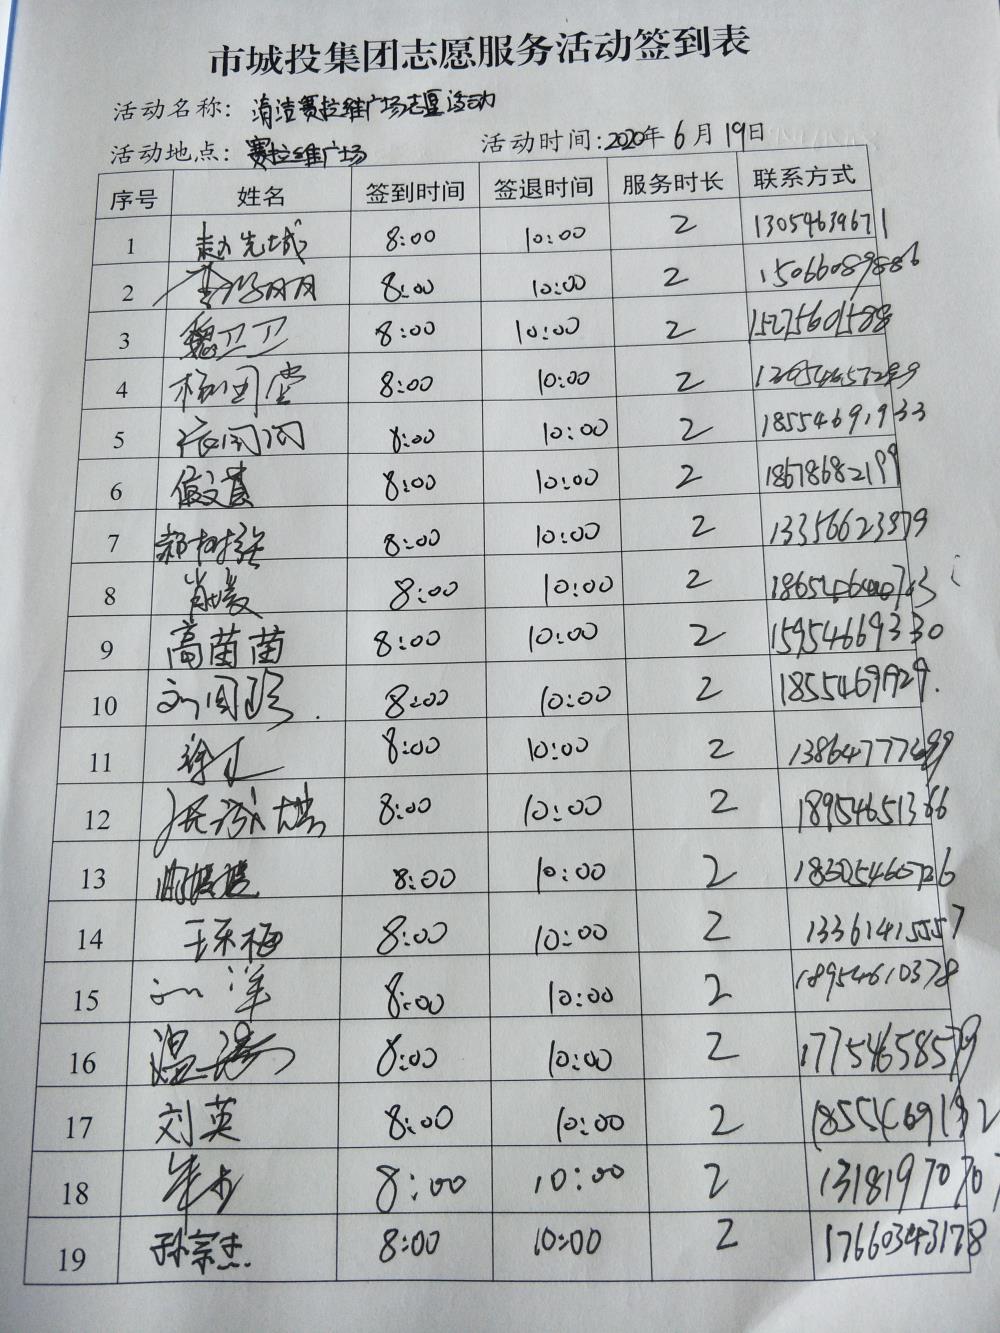 市城投集团志愿服务活动签到表
活动名称: 清洁赛拉维广场志愿活动
活动地点: 赛拉维广场 活动时间:2020年6月19日
序号 姓名 签到时间 签退时间 服务时长 联系方式
1 赵先城 8:00 10:00 2 13054639671
2 8:00 10:00 2 15066089886
3 魏卫卫 8:00 10:00 2 15275601588
4 8:00 10:00 2
5 8:00 10:00 2 18554691933
6 8:00 10:00 2 18678682199
7 8:00 10:00 2 13356623879
8 肖媛 8:00 10:00 2
9 高苗苗 8:00 10:00 2 15954669330
10 8:00 10:00 2
11 8:00 10:00 2
12 8:00 10:00 2 18954651366
13 8:00 10:00 2 18305460726
14 王乐梅 8:00 10:00 2 13361415557
15 刘洋 8:00 10:00 2 18954610378
16 8:00 10:00 2 17754658579
17 刘英 8:00 10:00 2
18 8:00 10:00 2 13181970707
19 孙宗杰 8:00 10:00 2 17660343178